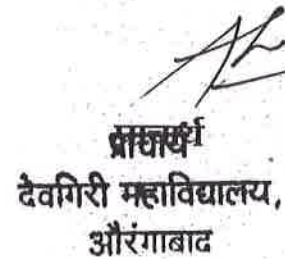 प्राचार्य
देवगिरी महाविद्यालय,
औरंगाबाद